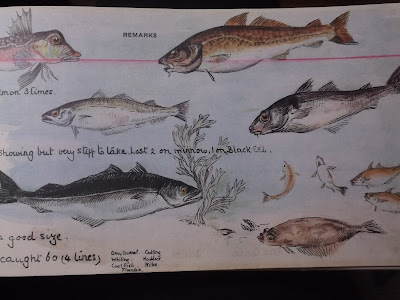 REMARKS
lmon 3 times.
showing but very stiff to take. Lost 2 on minnow, 1 on Black Eel.
a good size.
caught 60 (4 lines)
Grey Gurnet. Codling
Whiting Haddock
Coal Fish